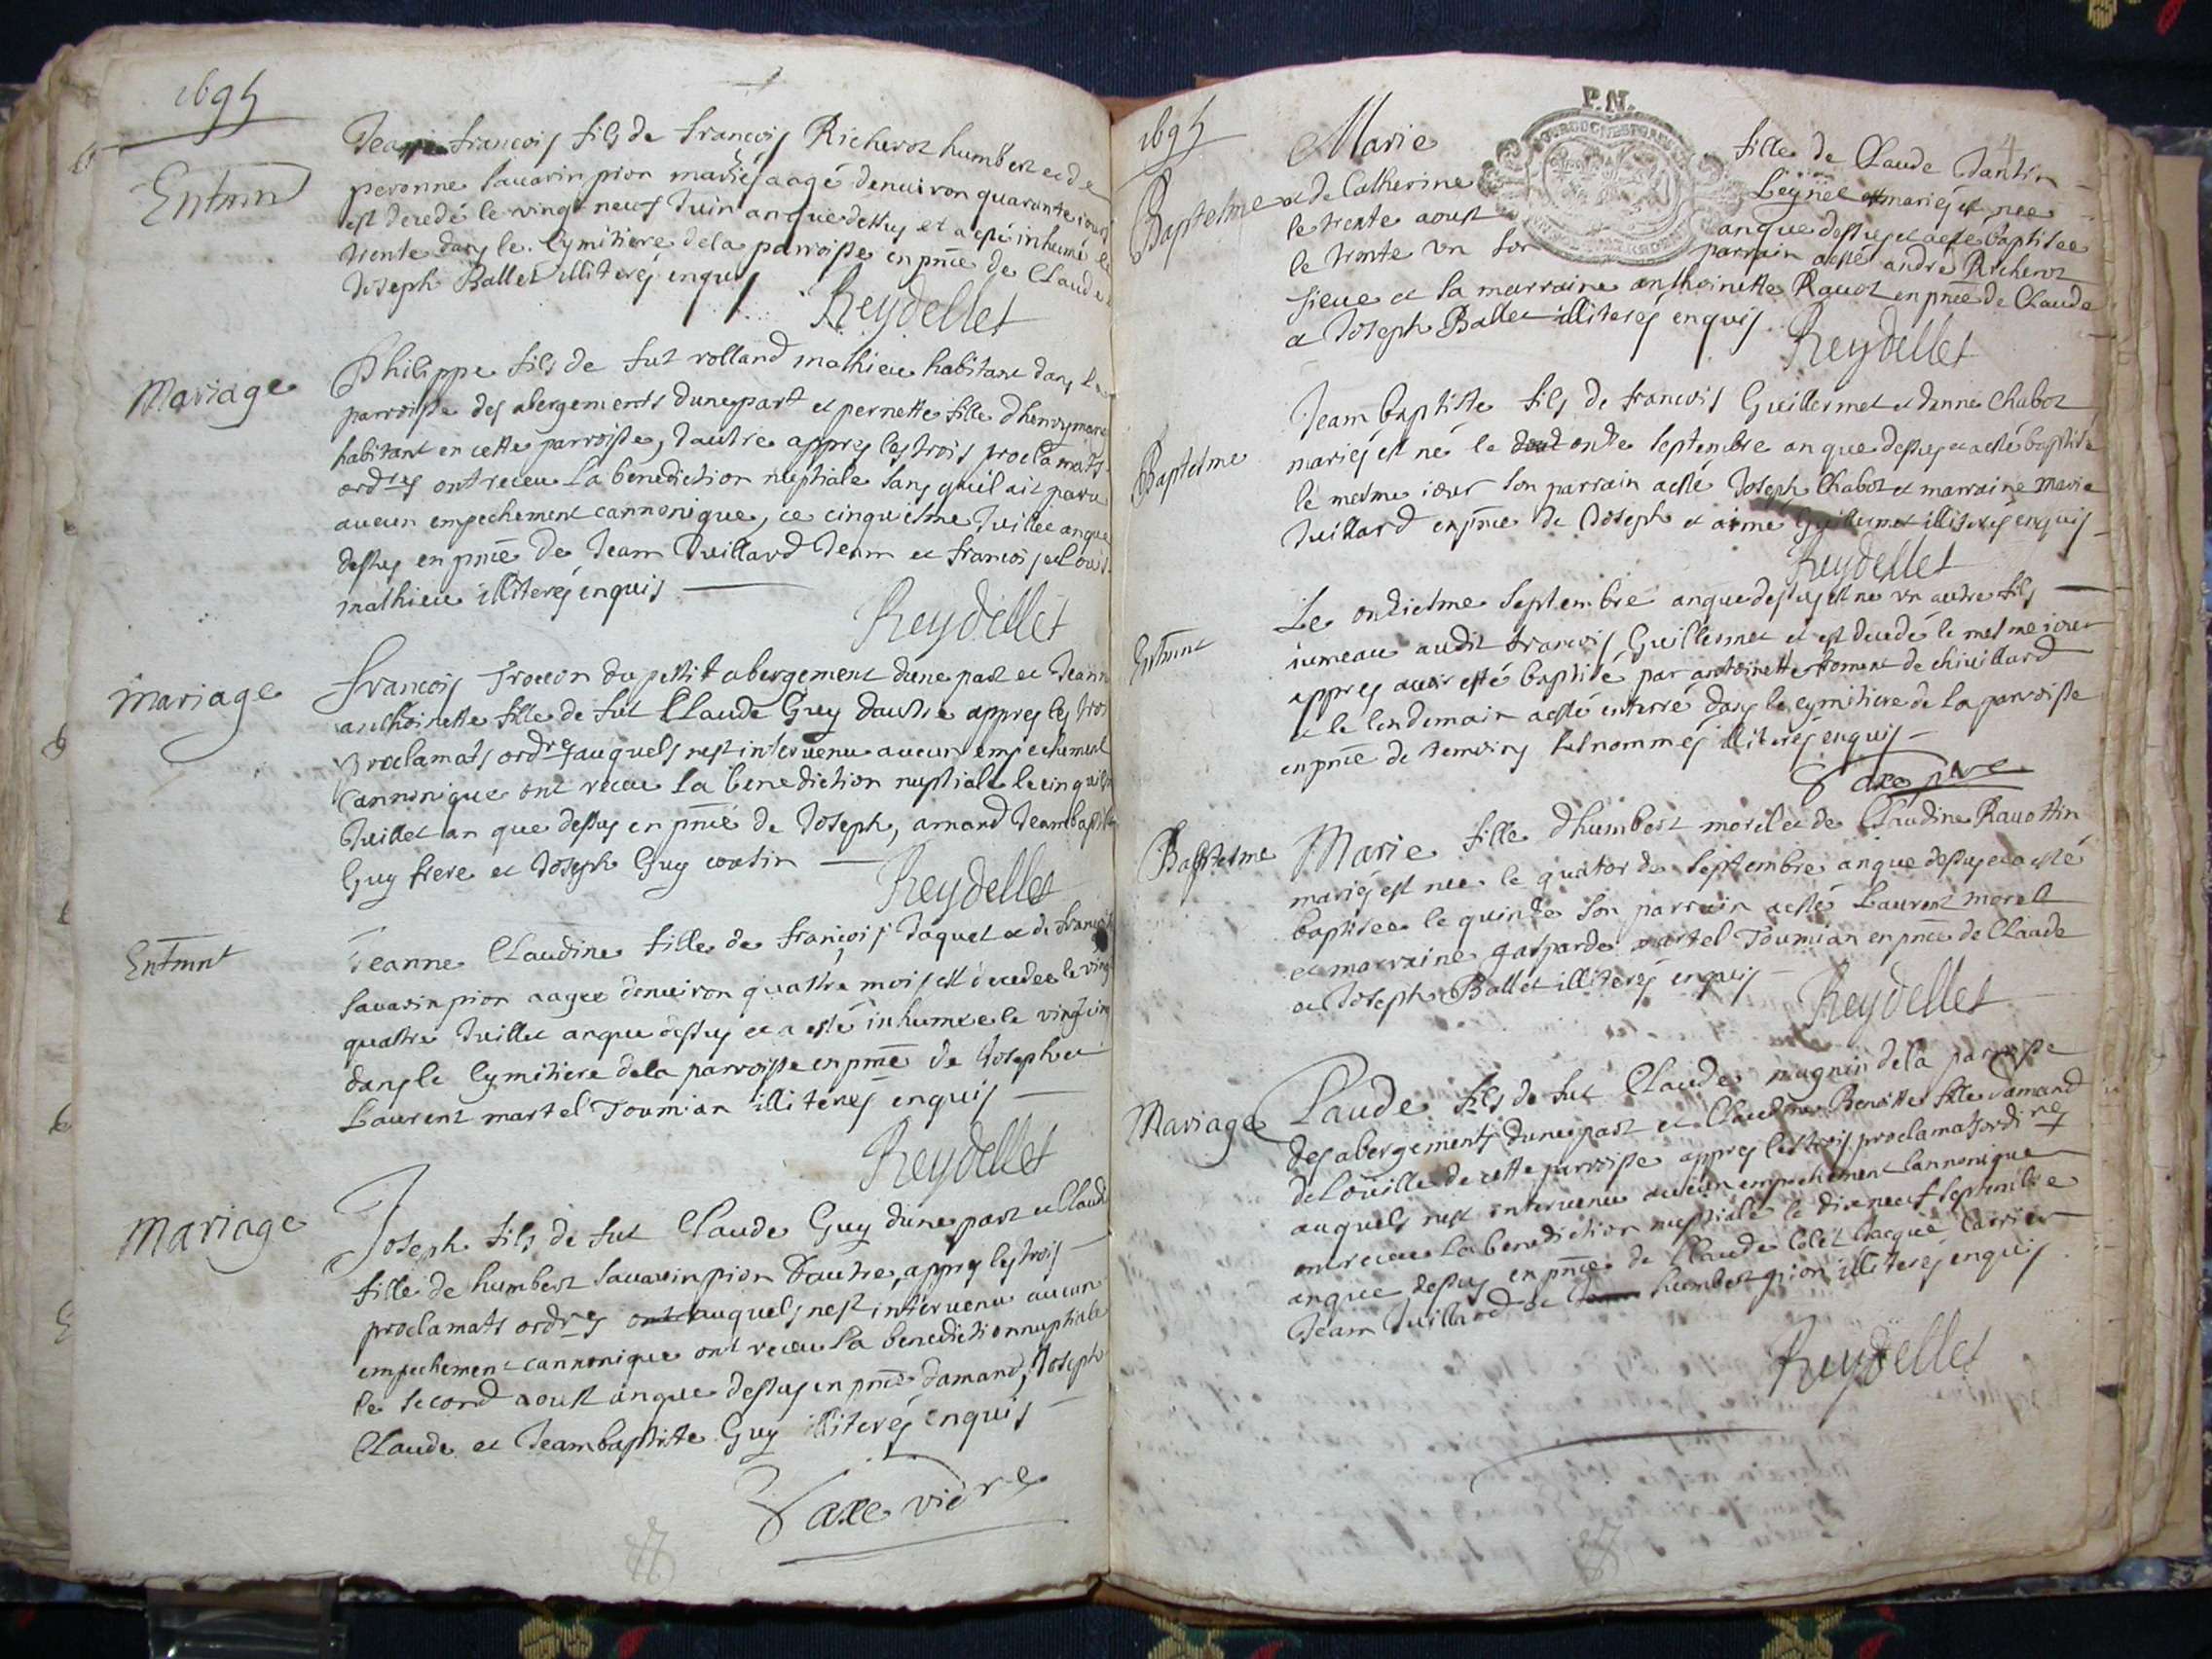 1695
Entmnt
Jean francois fils de francois Richerot humbert et de
peronne Sauarin pion mariés aagé denuiron quarante iours
est decedé le vingt neuf Juin an que dessus et a esté inhumé le
trente dans le Cymitiere dela parroisse en pnce de Claude
Joseph Ballet illiterés enquis
Reydellet
Mariage
Philippe fils de fut rolland mathieu habitant dans la
parroisse des abergements dune part et pernette fille dhenry
habitant en cette parroisse, dautre appres les trois proclamats
ordres ont receu la benediction nuptiale sans quil ait paru
aucun empechement cannonique, ce cinquiesme Juillet an que
dessus en pnce de Jean Juillard Jean et francois et Louis
mathieu illiterés enquis
Reydellet
Mariage
francois Trocon du pettit abergement dune part et Jeanne
anthoinette fille de fut Claude Guy dautre appres les trois
proclamats ordres auquels nest interuenu aucun empechement
Cannonique ont receu la benediction nuptiale le cinquiesme
Juillet an que dessus en pnce de Joseph, amand Jeambaptiste
Guy frere et Joseph Guy cousin
Reydellet
Entmnt
Jeanne Claudine fille de françois Jaquet et de francoise
Sauarin pion aagee denuiron quattre mois est decedee le vingt
quattre Juillet an que dessus et a esté inhumee le vingt cinq
dans le Cymitiere dela parroisse en pnce de Joseph et
Laurent martel Toumian illiterés enquis
Reydellet
Mariage
Joseph fils de fut Claude Guy dune part et Claude
fille de humbert Sauarin pion dautre, appres les trois
proclamats ordres ont auquels nest interuenu aucun
empechement cannonique ont receu la benediction nuptiale
le second aoust an que dessus en pnce damand, Joseph
Claude et Jeambaptiste Guy illiterés enquis
Taxe vicre
1695
P.N.
4
Baptesme
Marie fille de Claude Jantin
et de Catherine Leynet mariés est nee
le trente aoust an que dessus et a esté baptisee
le trente vn son parrain a esté andré Richerot
sieue et sa marraine anthoinette Rauot en pnce de Claude
et Joseph Ballet illiterés enquis
Reydellet
Baptesme
Jeam baptiste fils de francois Guillermet et danne Chabot
mariés est né le onze Septembre an que dessus et a esté baptisé
le mesme iour son parrain a esté Joseph Chabot et marraine Marie
Juillard en pnce de Joseph et aimé Guillermet illiterés enquis
Reydellet
Entmnt
Le onziesme Septembre an que dessus est né vn autre fils
iumeau audit francois Guillermet et est decedé le mesme iour
appres auoir esté baptisé par antoinette de chiuillard
et le lendemain a esté enterré dans le cymitiere de la parroisse
en pnce de temoins susnommés illiterés enquis
Taxe vicre
Baptesme
Marie fille dhumbert morel et de Claudine Rauottin
mariés est nee le quatorze Septembre an que dessus et a esté
baptisee le quinze son parrain a esté Laurent morel
et marraine gasparde martel Toumian en pnce de Claude
et Joseph Ballet illiterés enquis
Reydellet
Mariage
Claude fils de fut Claude mugnin dela parroisse
des abergements dune part et Claudine Benoitte fille damand
de Loüille de cette parroisse appres les trois proclamats ordires
auquels nest interuenu aucun empechement Cannonique
ont receu la benediction nuptiale le dixneuf Septembre
an que dessus en pnce de Claude Colet Jacque Carrier
Jean Juillard et humbert pion illiterés enquis
Reydellet